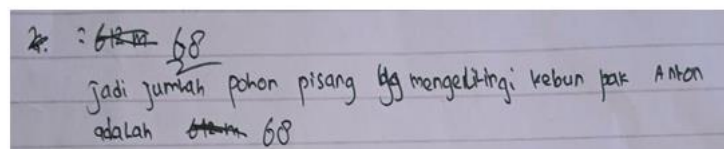 = 68
jadi jumlah pohon pisang yg mengelilingi kebun pak Anton
adalah 68